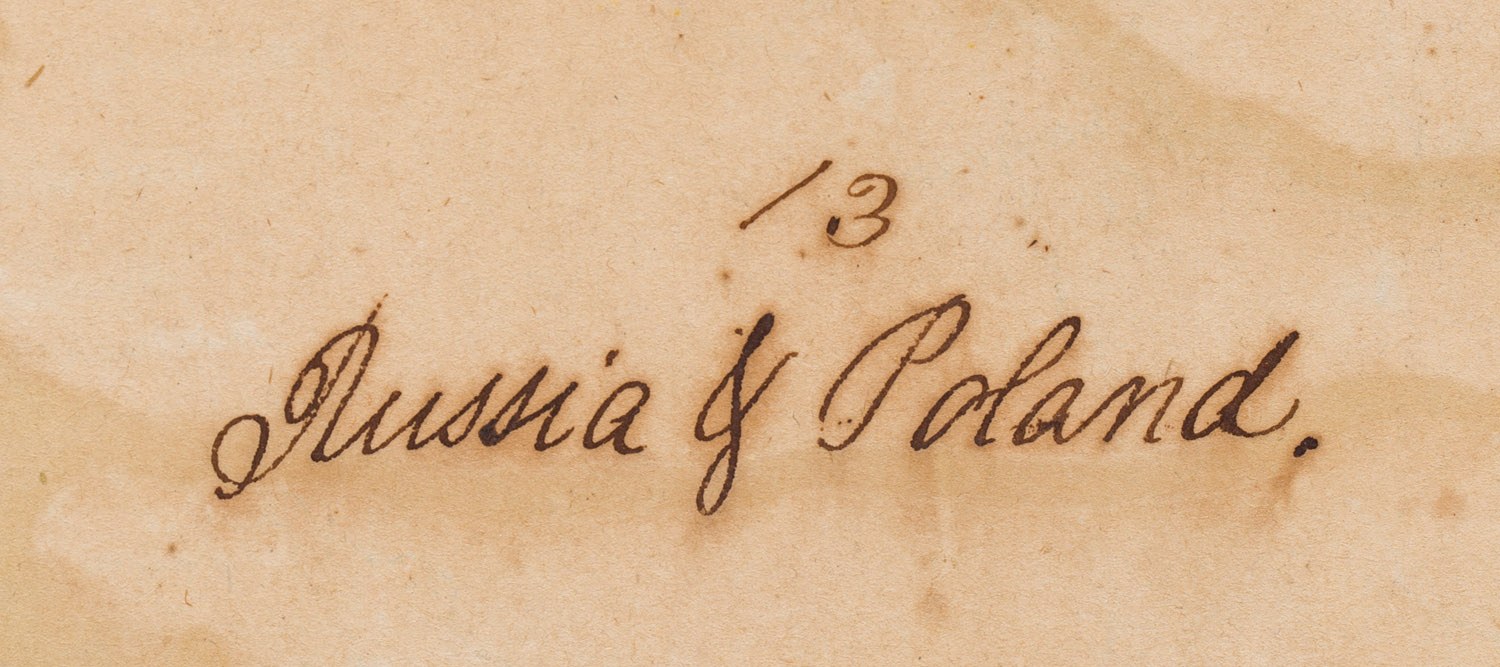 13
Russia & Poland.